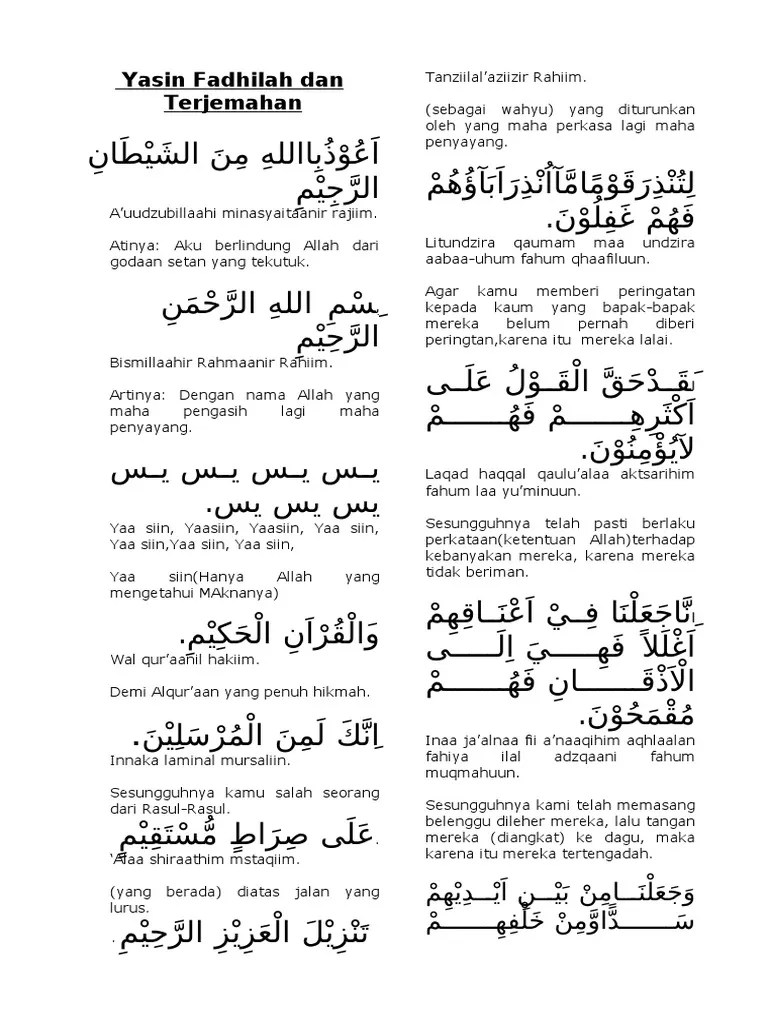 Yasin Fadhilah dan
Terjemahan
اَعُوْذُبِااللهِ مِنَ الشَيْطَانِ
الرَّجِيْمِ
A’uudzubillaahi minasyaitaanir rajiim.
Atinya: Aku berlindung Allah dari
godaan setan yang tekutuk.
بِسْمِ اللهِ الرَّحْمَنِ
الرَّحِيْمِ
Bismillaahir Rahmaanir Rahiim.
Artinya: Dengan nama Allah yang
maha pengasih lagi maha
penyayang.
يــس يــس يــس يــس
يس يس يس.
Yaa siin, Yaasiin, Yaasiin, Yaa siin,
Yaa siin,Yaa siin, Yaa siin,
Yaa siin(Hanya Allah yang
mengetahui MAknanya)
وَالْقُرْاَنِ الْحَكِيْمِ.
Wal qur’aanil hakiim.
Demi Alqur’aan yang penuh hikmah.
اِنَّكَ لَمِنَ الْمُرْسَلِيْنَ.
Innaka laminal mursaliin.
Sesungguhnya kamu salah seorang
dari Rasul-Rasul.
عَلَى صِرَاطٍ مُّسْتَقِيْمٍ.
‘Alaa shiraathim mstaqiim.
(yang berada) diatas jalan yang
lurus.
تَنْزِيْلَ الْعَزِيْزِ الرَّحِيْمِ.
Tanziilal’aziizir Rahiim.
(sebagai wahyu) yang diturunkan
oleh yang maha perkasa lagi maha
penyayang.
لِتُنْذِرَقَوْمًامَّآاُنْذِرَاَبَآؤُهُمْ
فَهُمْ غَفِلُوْنَ.
Litundzira qaumam maa undzira
aabaa-uhum fahum qhaafiluun.
Agar kamu memberi peringatan
kepada kaum yang bapak-bapak
mereka belum pernah diberi
peringtan,karena itu mereka lalai.
لَقَــدْحَقَّ الْقَــوْلُ عَلَــى
اَكْثَرِهِـــــمْ فَهُـــــمْ
لاَيُؤْمِنُوْنَ.
Laqad haqqal qaulu’alaa aktsarihim
fahum laa yu’minuun.
Sesungguhnya telah pasti berlaku
perkataan(ketentuan Allah)terhadap
kebanyakan mereka, karena mereka
tidak beriman.
اِنَّاجَعَلْنَا فِــيْ اَعْنَــاقِهِمْ
اَغْلَلاً فَهِـــــيَ اِلَـــــى
الْاَذْقَـــــانِ فَهُـــــمْ
مُقْمَحُوْنَ.
Inaa ja’alnaa fii a’naaqihim aqhlaalan
fahiya ilal adzqaani fahum
muqmahuun.
Sesungguhnya kami telah memasang
belenggu dileher mereka, lalu tangan
mereka (diangkat) ke dagu, maka
karena itu mereka tertengadah.
وَجَعَلْنَــامِنْ بَيْــنِ اَيْــدِيْهِمْ
سَـــــدًّاوَّمِنْ خَلْفِهِـــــمْ